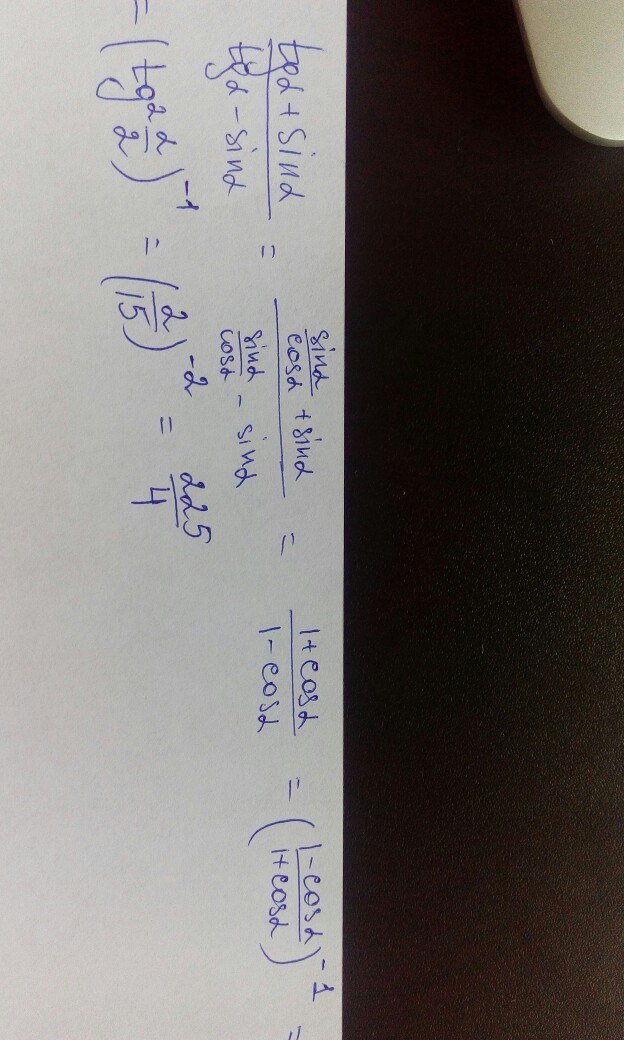 (tgα + sinα)/(tgα − sinα) = (sinα/cosα + sinα)/(sinα/cosα − sinα) = (1+cosα)/(1−cosα) = ((1−cosα)/(1+cosα))^−1 =
= (tg² α/2)^−1 = (2/15)^−2 = 225/4